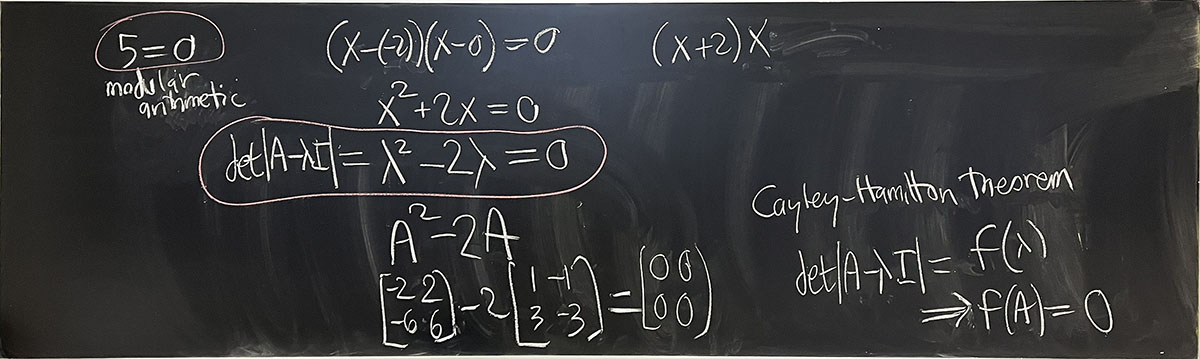 5=0
modular
arithmetic
(x-(-2))(x-0)=0
(x+2)x
x²+2x=0
det|A-λI|=λ²-2λ=0
A²-2A
[-2 2; -6 6]-2[1 -1; 3 -3]=[0 0; 0 0]
Cayley-Hamilton Theorem
det|A-λI|=f(λ)
⇒f(A)=0